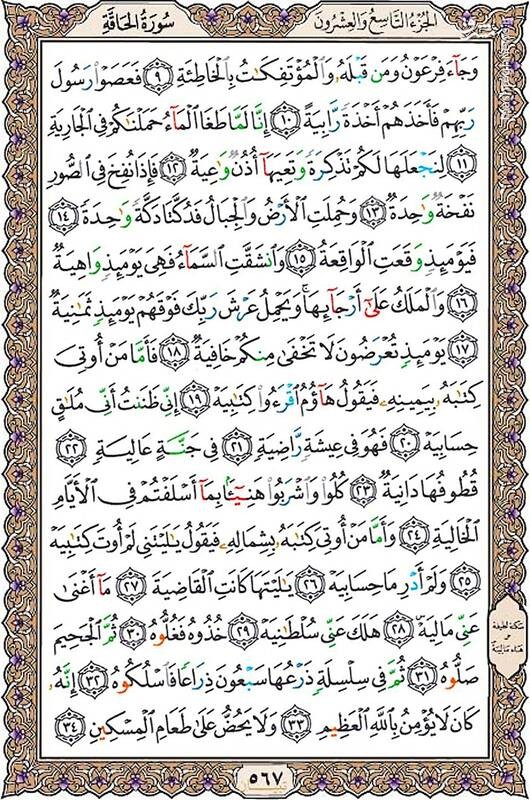 الجُزءُ التَّاسِعُ وَالعِشْرُونَ
سُورَةُ الحَاقَّةِ
وَجَآءَ فِرْعَوْنُ وَمَن قَبْلَهُۥ وَالْمُؤْتَفِكَٰتُ بِالْخَاطِئَةِ ﴿٩﴾ فَعَصَوْا۟ رَسُولَ
رَبِّهِمْ فَأَخَذَهُمْ أَخْذَةً رَّابِيَةً ﴿١٠﴾ إِنَّا لَمَّا طَغَا الْمَآءُ حَمَلْنَٰكُمْ فِى الْجَارِيَةِ
﴿١١﴾ لِنَجْعَلَهَا لَكُمْ تَذْكِرَةً وَتَعِيَهَآ أُذُنٌ وَٰعِيَةٌ ﴿١٢﴾ فَإِذَا نُفِخَ فِى الصُّورِ
نَفْخَةٌ وَٰحِدَةٌ ﴿١٣﴾ وَحُمِلَتِ الْأَرْضُ وَالْجِبَالُ فَدُكَّتَا دَكَّةً وَٰحِدَةً ﴿١٤﴾
فَيَوْمَئِذٍ وَقَعَتِ الْوَاقِعَةُ ﴿١٥﴾ وَانشَقَّتِ السَّمَآءُ فَهِىَ يَوْمَئِذٍ وَاهِيَةٌ
﴿١٦﴾ وَالْمَلَكُ عَلَىٰٓ أَرْجَآئِهَا ۚ وَيَحْمِلُ عَرْشَ رَبِّكَ فَوْقَهُمْ يَوْمَئِذٍ ثَمَٰنِيَةٌ
﴿١٧﴾ يَوْمَئِذٍ تُعْرَضُونَ لَا تَخْفَىٰ مِنكُمْ خَافِيَةٌ ﴿١٨﴾ فَأَمَّا مَنْ أُوتِىَ
كِتَٰبَهُۥ بِيَمِينِهِۦ فَيَقُولُ هَآؤُمُ اقْرَءُوا۟ كِتَٰبِيَهْ ﴿١٩﴾ إِنِّى ظَنَنتُ أَنِّى مُلَٰقٍ
حِسَابِيَهْ ﴿٢٠﴾ فَهُوَ فِى عِيشَةٍ رَّاضِيَةٍ ﴿٢١﴾ فِى جَنَّةٍ عَالِيَةٍ ﴿٢٢﴾
قُطُوفُهَا دَانِيَةٌ ﴿٢٣﴾ كُلُوا۟ وَاشْرَبُوا۟ هَنِيٓـًٔۢا بِمَآ أَسْلَفْتُمْ فِى الْأَيَّامِ
الْخَالِيَةِ ﴿٢٤﴾ وَأَمَّا مَنْ أُوتِىَ كِتَٰبَهُۥ بِشِمَالِهِۦ فَيَقُولُ يَٰلَيْتَنِى لَمْ أُوتَ كِتَٰبِيَهْ
﴿٢٥﴾ وَلَمْ أَدْرِ مَا حِسَابِيَهْ ﴿٢٦﴾ يَٰلَيْتَهَا كَانَتِ الْقَاضِيَةَ ﴿٢٧﴾ مَآ أَغْنَىٰ
عَنِّى مَالِيَهْ ﴿٢٨﴾ هَلَكَ عَنِّى سُلْطَٰنِيَهْ ﴿٢٩﴾ خُذُوهُ فَغُلُّوهُ ﴿٣٠﴾ ثُمَّ الْجَحِيمَ
صَلُّوهُ ﴿٣١﴾ ثُمَّ فِى سِلْسِلَةٍ ذَرْعُهَا سَبْعُونَ ذِرَاعًا فَاسْلُكُوهُ ﴿٣٢﴾ إِنَّهُۥ
كَانَ لَا يُؤْمِنُ بِاللَّهِ الْعَظِيمِ ﴿٣٣﴾ وَلَا يَحُضُّ عَلَىٰ طَعَامِ الْمِسْكِينِ ﴿٣٤﴾
سكتة لطيفة
هاء ماليه
٥٦٧